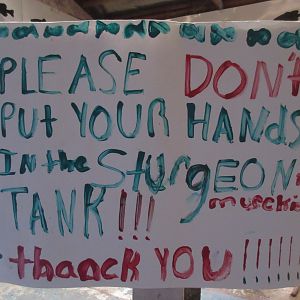 PLEASE DON't
PUt YOUR HANDS
IN the SturgEON
TANK!!!
thanck YOU !!!!!!